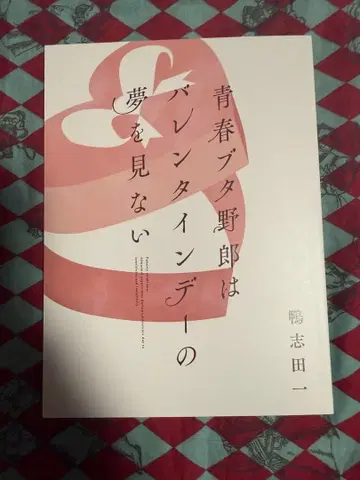 青春ブタ野郎は
バレンタインデーの
夢を見ない
鴨志田一